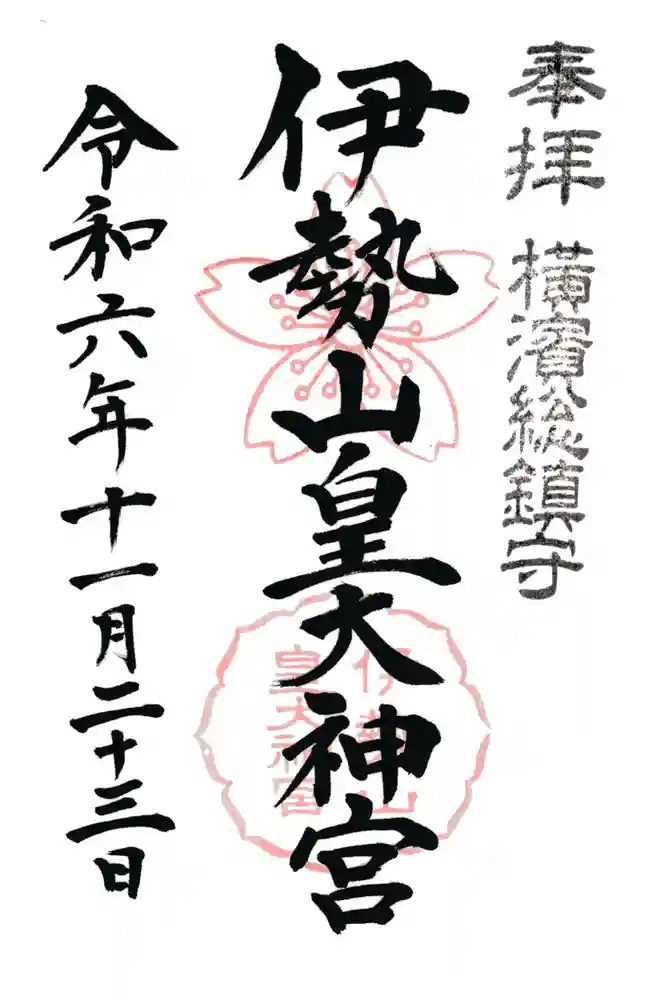 奉拝 横濱総鎮守
伊勢山皇大神宮
伊勢山
皇大神宮
令和六年十一月二十三日